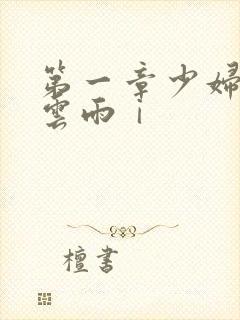 第一章少婦
雲雨｜
檀書